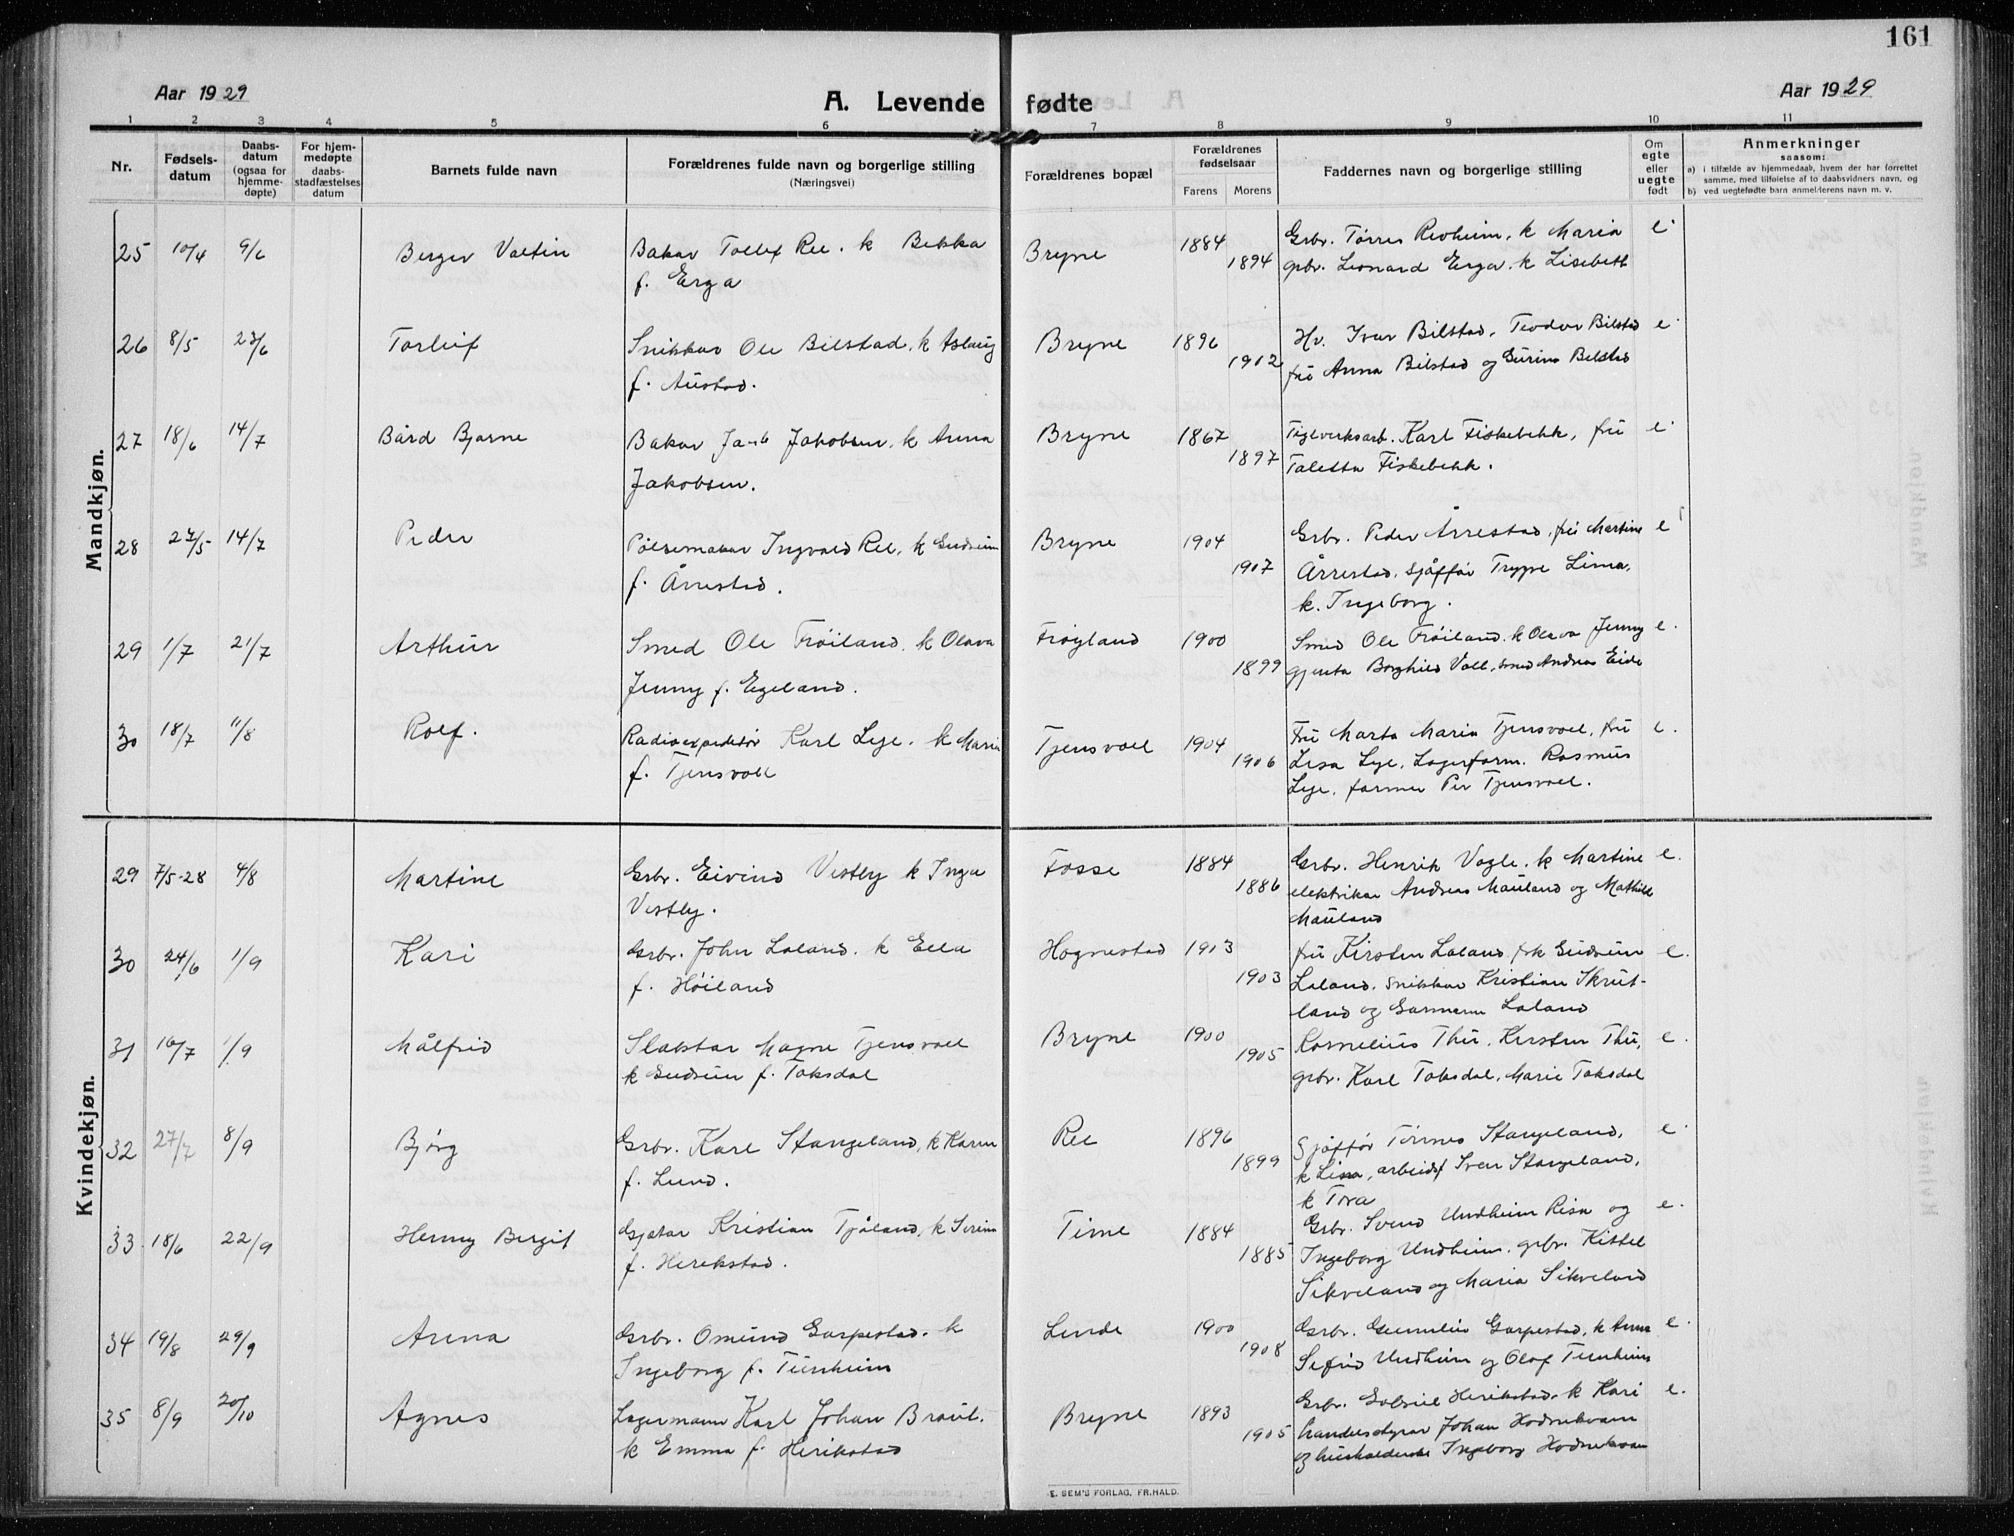 161
Aar 1929
A. Levende fødte
Aar 1929
1 2 3 4 5 6 7 8 9 10 11
Nr.
Fødsels-
datum
Daabs-
datum
(ogsaa for
hjemme-
døpte)
For hjem-
medøpte
daabs-
stadfæstelses
datum
Barnets fulde navn
Forældrenes fulde navn og borgerlige stilling
(Næringsvei)
Forældrenes bopæl
Forældrenes
fødselsaar
Farens Morens
Faddernes navn og borgerlige stilling
Om
egte
eller
uegte
født
Anmerkninger
saasom:
a) i tilfælde av hjemmedaab, hvem der har forrettet
samme, med tilføielse af to daabsvidners navn, og
b) ved uegtefødte barn anmelderens navn m. v.
Mandkjøn.
25 10/4 9/6 Berger Valtin Bakar Tollef Ree. k Bekka
f. Erga
Bryne 1884 1894
Grbr. Tørres Revheim, k Maria
grbr. Leonard Erga. k Lisebett
e.
26 8/5 23/6 Torleif Snikkar Ole Bilstad, k Aslaug
f. Austad.
Bryne 1896 1902
Hr. Ivar Bilstad, Teodor Bilstad
fru Anna Bilstad og Gurina Bilstad
e.
27 18/6 14/7 Bård Bjarne Bakar Jakob Jakobsen, k Anna
Jakobsen.
Bryne 1867 1897
Tiglverksarb. Karl Fiskebekk, fru
Taletta Fiskebekk.
e.
28 27/5 14/7 Peder Pølsemakar Ingvald Ree, k Gudrun
f. Årrestad.
Bryne 1904 1907
Grbr. Peder Årrestad, fru Martine
Årrestad, sjåffør Trygve Lima,
k. Ingeborg.
e
29 1/7 21/7 Arthur Smed Ole Frøiland, k Olava
Jenny f. Egeland.
Frøyland 1900 1899
Smed Ole Frøiland, k Olava Jenny
gjenta Borghild Voll, smed Andreas Eide
e.
30 18/7 11/8 Rolf. Radioexpeditør Karl Lye. k Maria
f. Tjensvoll
Tjensvoll 1904 1906
Fru Marta Maria Tjensvoll, fru
Lisa Lye, Lagerform. Rasmus
Lye, farmer Per Tjensvoll.
e.
Kvindekjøn.
29 7/5-28 4/8 Martine Grbr. Eivind Vestly k Inga
Vestly.
Fosse 1884 1886
Grbr. Henrik Vagle, k Martine
elektrikar Andreas Mauland og Mathilde
Mauland
e.
30 24/6 1/9 Kari Grbr. John Laland. k Ella
f. Høiland
Hognestad 1903 1903
fru Kirsten Laland, frk Gudrun
Laland, snikkar Kristian Skrut-
land og Laland
e.
31 16/7 1/9 Målfrid Slaktar Magne Tjensvoll
k Gudrun f. Taksdal
Bryne 1900 1905
Kornelius Thu, Kirsten Thu,
grbr. Karl Taksdal, Marie Taksdal
e.
32 27/7 8/9 Bjørg Grbr. Karl Stangeland, k Karen
f. Lund.
Ree 1896 1899
Sjåffør Tønnes Stangeland,
k Lina, arbeidsf Sven Stangeland,
k Tora
e.
33. 18/6 22/9 Henny Bergit Gjætar Kristian Tjåland, k Serina
f. Herikstad.
Time 1884 1885
Grbr. Svend Undheim Risa og
Ingeborg Undheim, grbr. Kittel
Sikveland og Maria Sikveland
e.
34 19/8 29/9 Anna Grbr. Omund Garpestad. k
Ingeborg f. Tunheim
Linde 1900 1908
Grbr. Gunnleiv Garpestad, k Anna
Sefrid Undheim og Olaf Tunheim
e.
35 8/9 20/10 Agnes Lagermann Karl Johan Braut.
k Emma f. Herikstad
Bryne 1893 1905
Grbr. Gabriel Herikstad, k Kari
handelsstyrar Johan Hodnekvam
og husholderske Ingeborg Hodnekvam
e.
E. SEM'S FORLAG, FR.HALD.